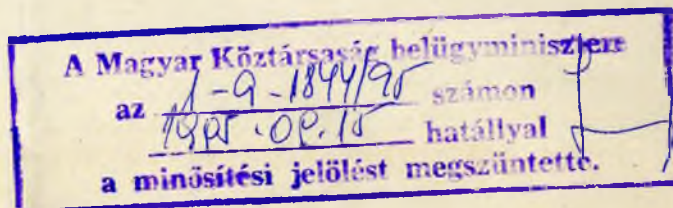 A Magyar Köztársaság belügyminisztere
az 1-a-1844/95 számon
1995.09.15 hatállyal
a minősítési jelölést megszüntette.